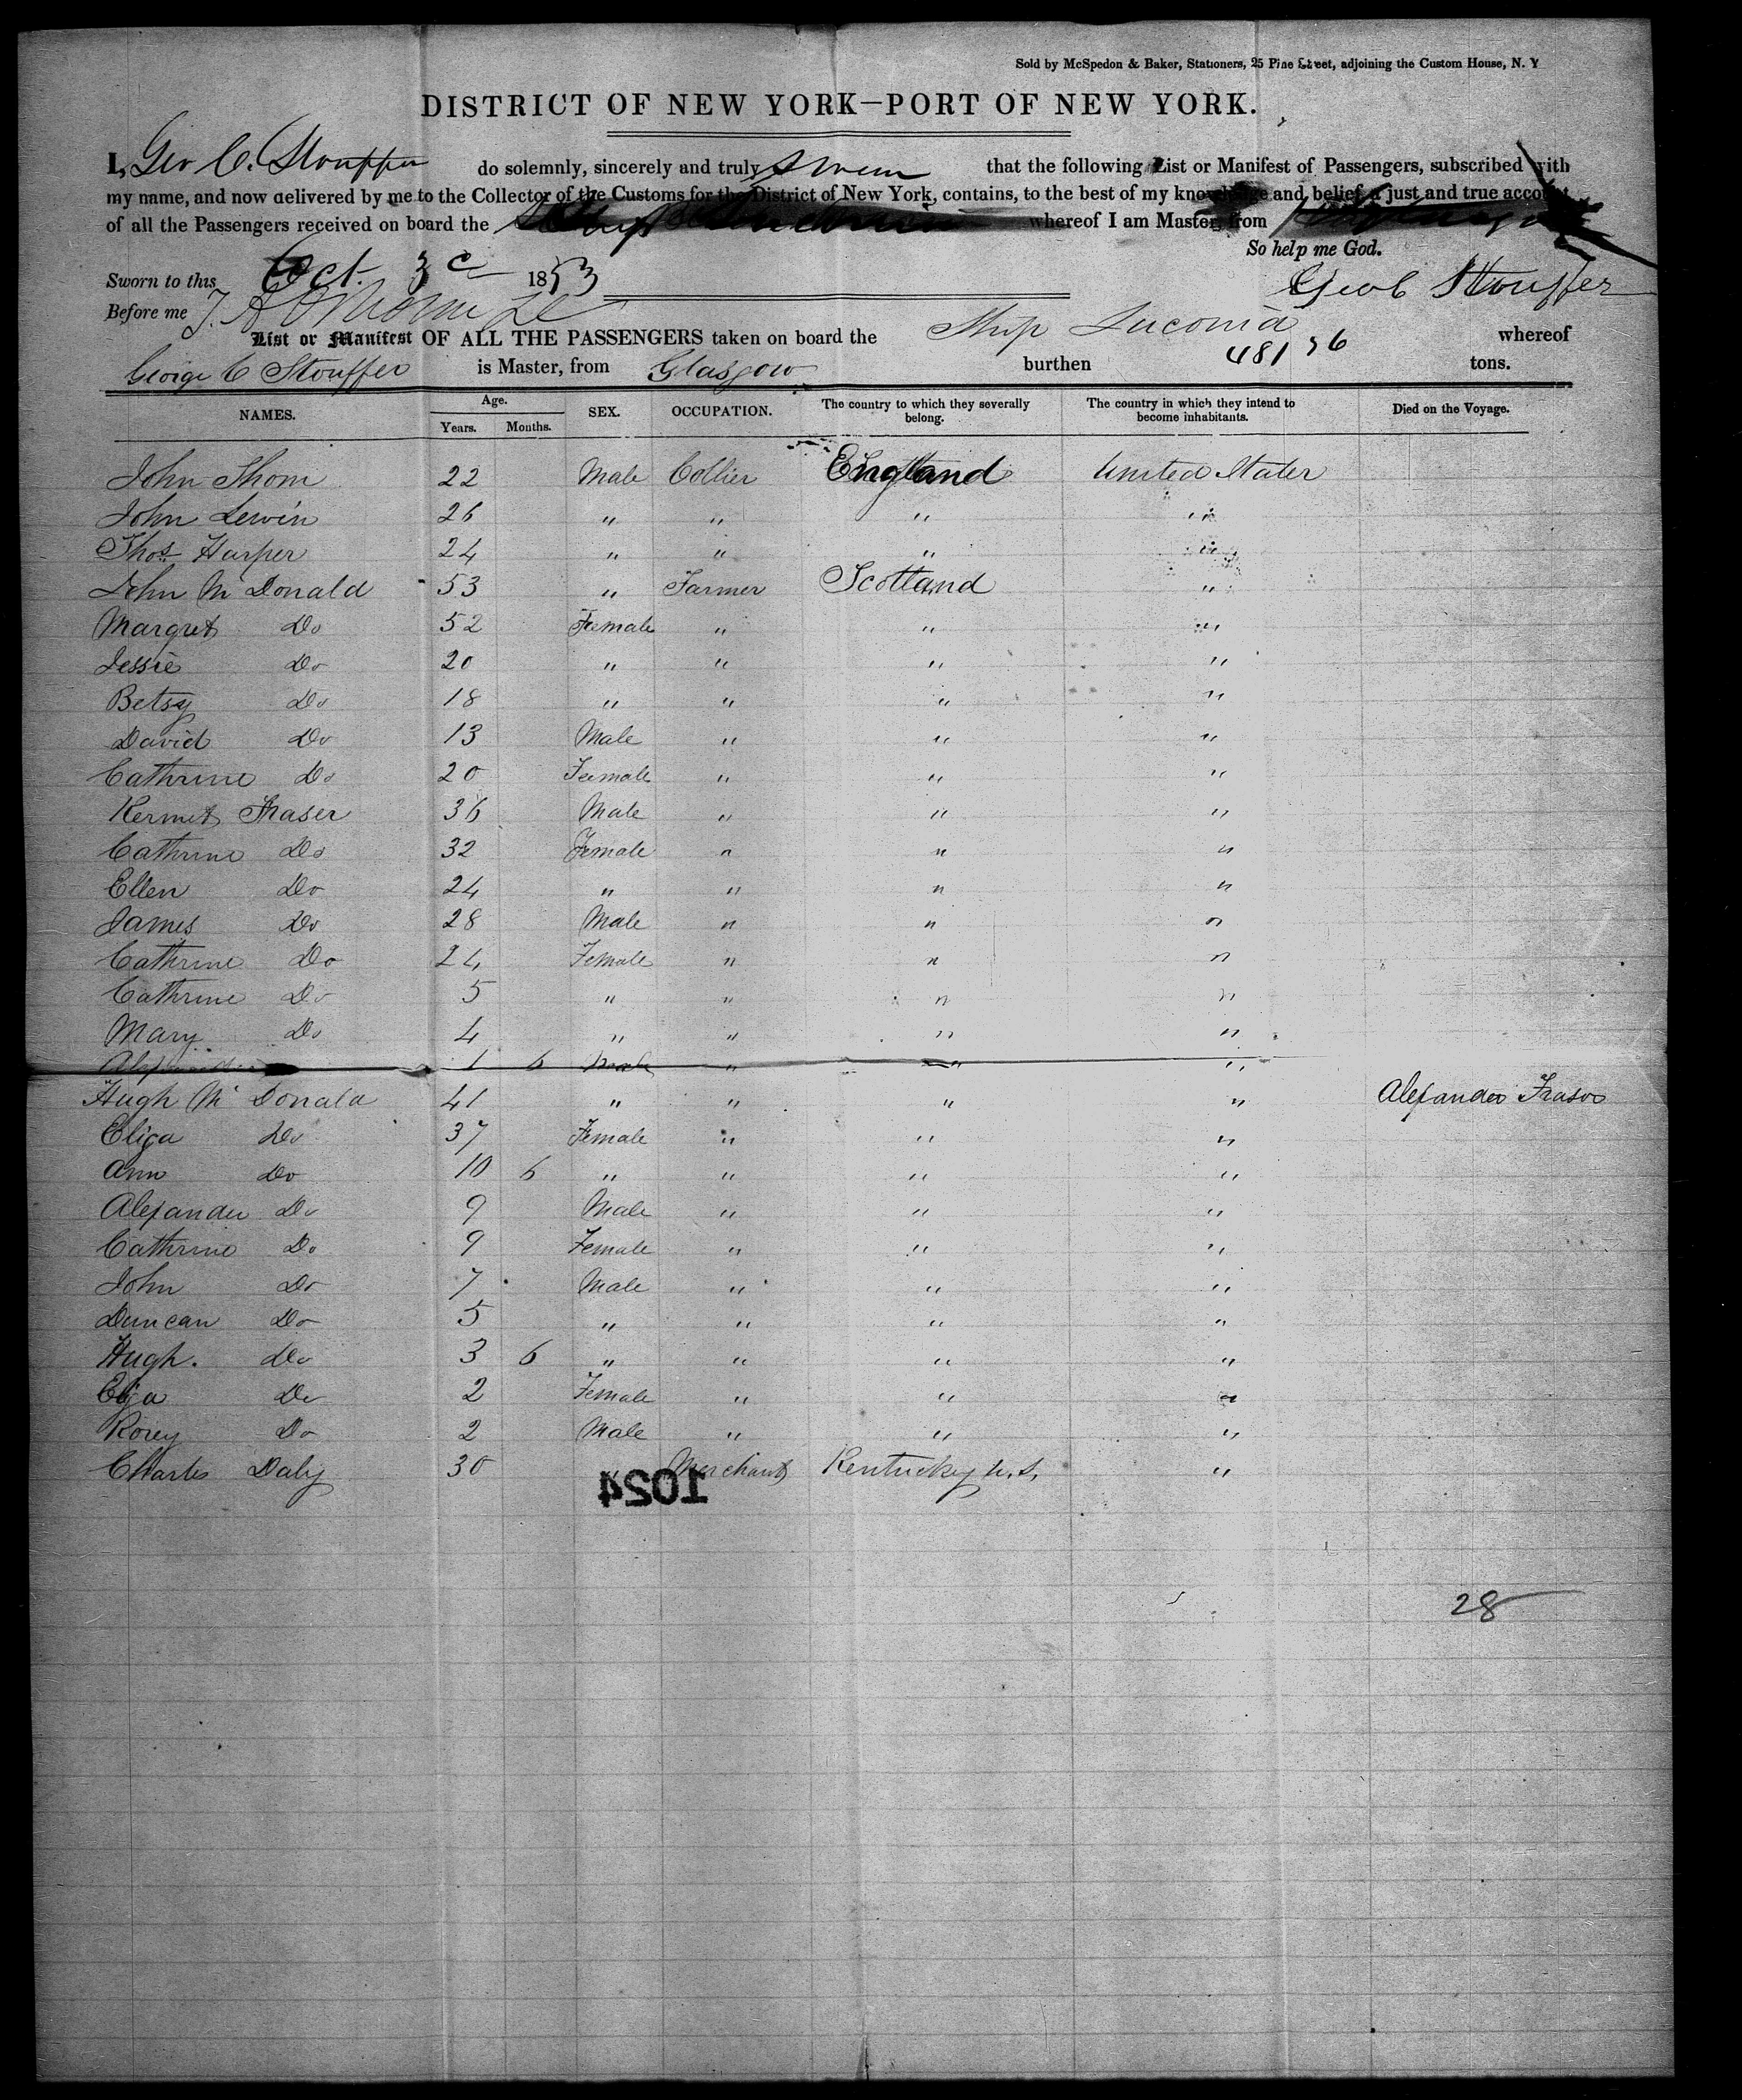 Sold by McSpedon & Baker, Stationers, 25 Pine Street, adjoining the Custom House, N. Y
DISTRICT OF NEW YORK—PORT OF NEW YORK.
I, Geo C. Stouffer do solemnly, sincerely and truly swear that the following List or Manifest of Passengers, subscribed with
my name, and now delivered by me to the Collector of the Customs for the District of New York, contains, to the best of my knowledge and belief, a just and true account
of all the Passengers received on board the Ship whereof I am Master, from
So help me God.
Sworn to this Oct. 3d 1853 Geo C Stouffer
Before me
List or Manifest OF ALL THE PASSENGERS taken on board the Ship Laconia whereof
George C Stouffer is Master, from Glasgow burthen 481 36 tons.
NAMES. Age. Years. Months. SEX. OCCUPATION. The country to which they severally belong. The country in which they intend to become inhabitants. Died on the Voyage.
John Thom 22 Male Collier England United States
John Lewin 26 " " " "
Thos Harper 24 " " " "
John Mc Donald 53 " Farmer Scotland "
Margret Do 52 Female " " "
Jessie Do 20 " " " "
Betsy Do 18 " " " "
David Do 13 Male " " "
Cathrine Do 20 Female " " "
Kermit Fraser 36 Male " " "
Cathrine Do 32 Female " " "
Ellen Do 24 " " " "
James Do 28 Male " " "
Cathrine Do 24 Female " " "
Cathrine Do 5 " " " "
Mary Do 4 " " " "
Alexander 1 6 Male " " "
Hugh Mc Donald 41 " " " " Alexander Fraser
Eliza Do 37 Female " " "
Ann Do 10 6 " " " "
Alexander Do 9 Male " " "
Cathrine Do 9 Female " " "
John Do 7 Male " " "
Duncan Do 5 " " " "
Hugh. Do 3 6 " " " "
Eliza Do 2 Female " " "
Rorey Do 2 Male " " "
Charles Daly 30 " Merchant Kentucky U.S. "
1024
28